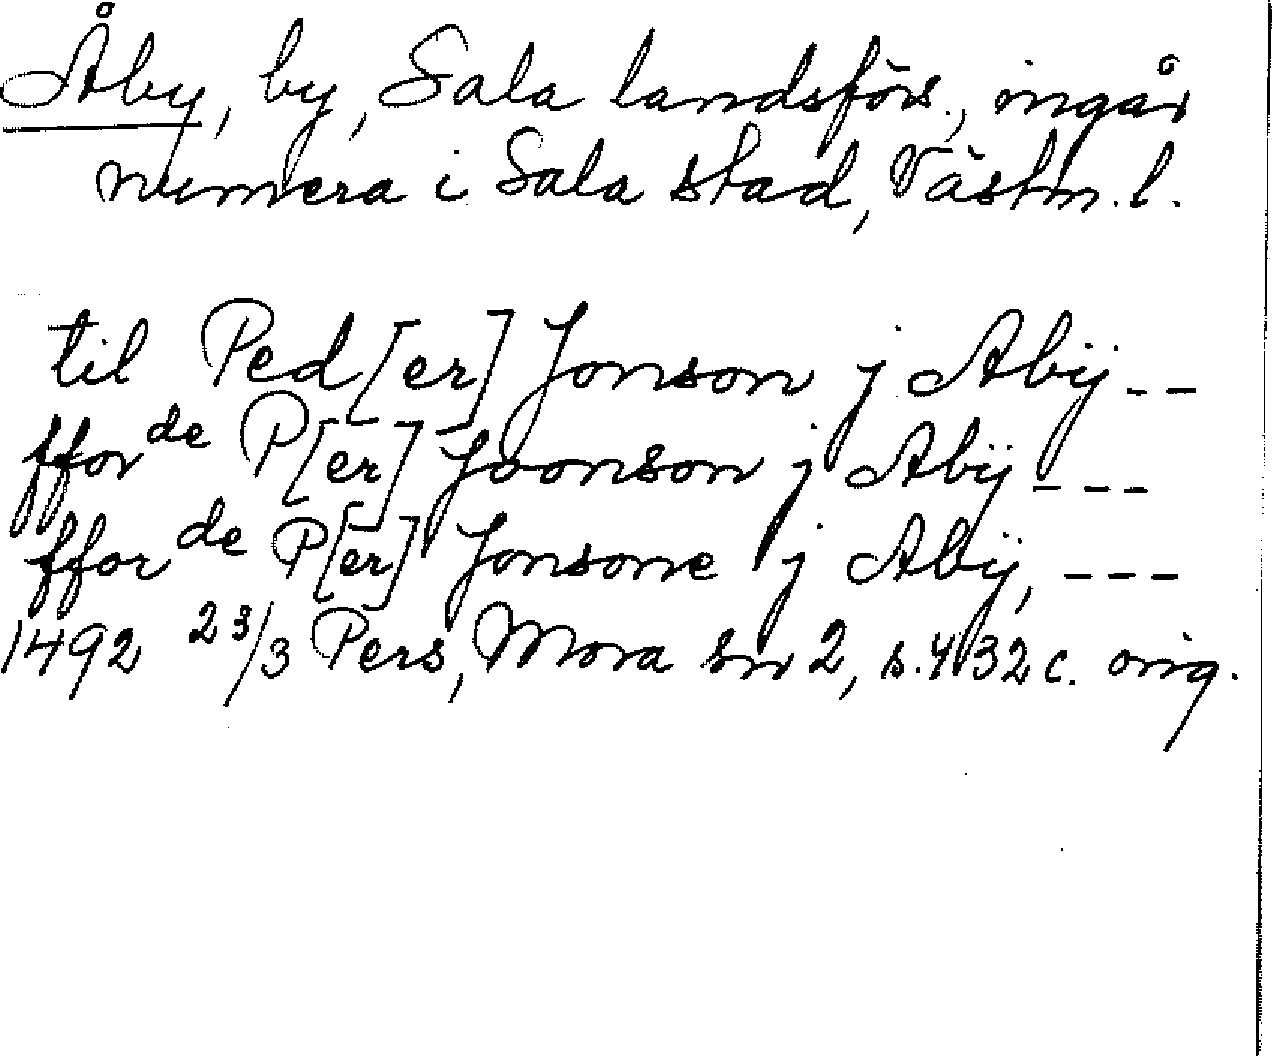 Åby, by, Sala landsförs., ingår
numera i Sala stad, Västm. l.
til Ped[er] Jonson j Abÿ - -
fforde P[er] Joonson j Abÿ - - -
fforde P[er] Jonsone j Abÿ, - - -
1492 23/3 Pers, Mora sn 2, s. 432 c. orig.